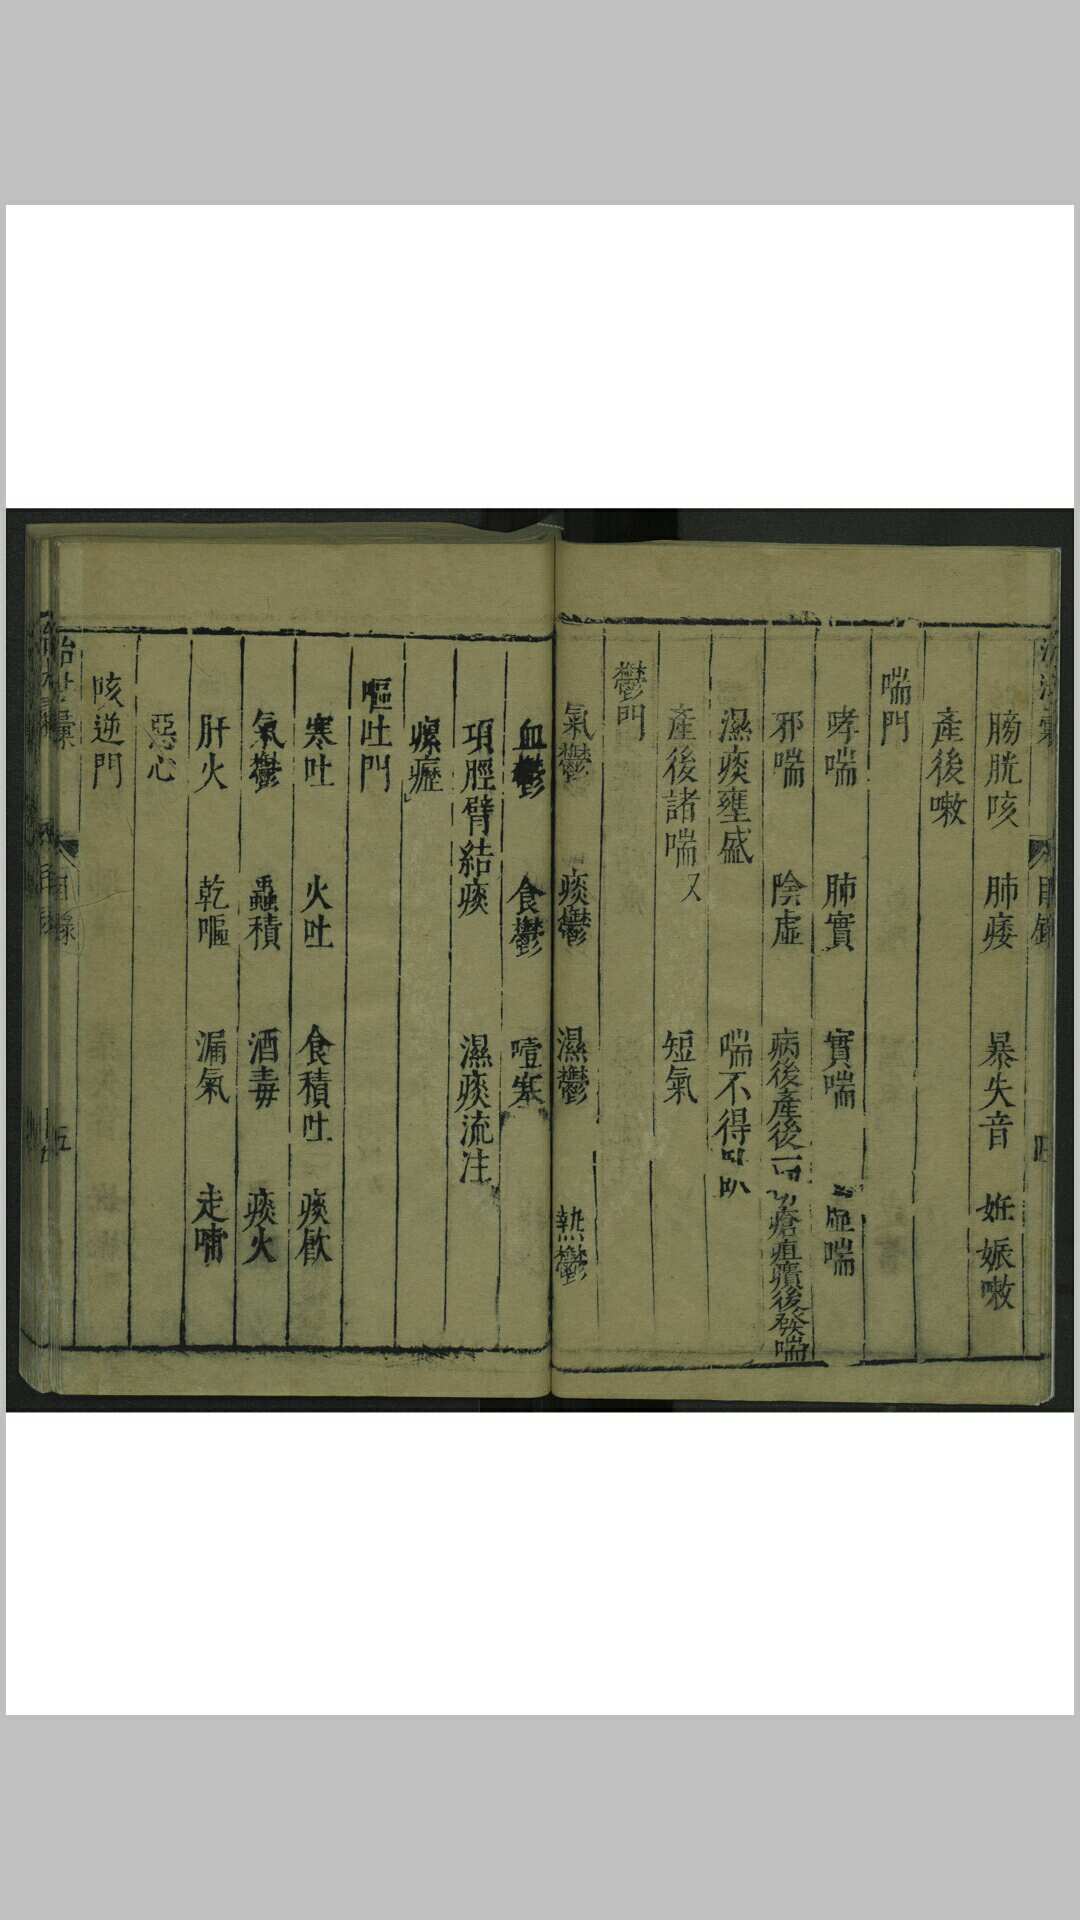 膀胱咳 肺痿 暴失音 妊娠嗽
產後嗽
喘門
哮喘 肺實 實喘 虛喘
邪喘 陰虛 病後產後 瘡疽瘡後發喘
濕痰壅盛 喘不得臥
產後諸喘又 短氣
鬱門
氣鬱 痰鬱 濕鬱 熱鬱
血鬱 食鬱 噎塞
項脛臂結痰 濕痰流注
瘰癧
嘔吐門
寒吐 火吐 食積吐 痰飮
氣鬱 蟲積 酒毒 痰火
肝火 乾嘔 漏氣 走哺
惡心
咳逆門
目錄 五